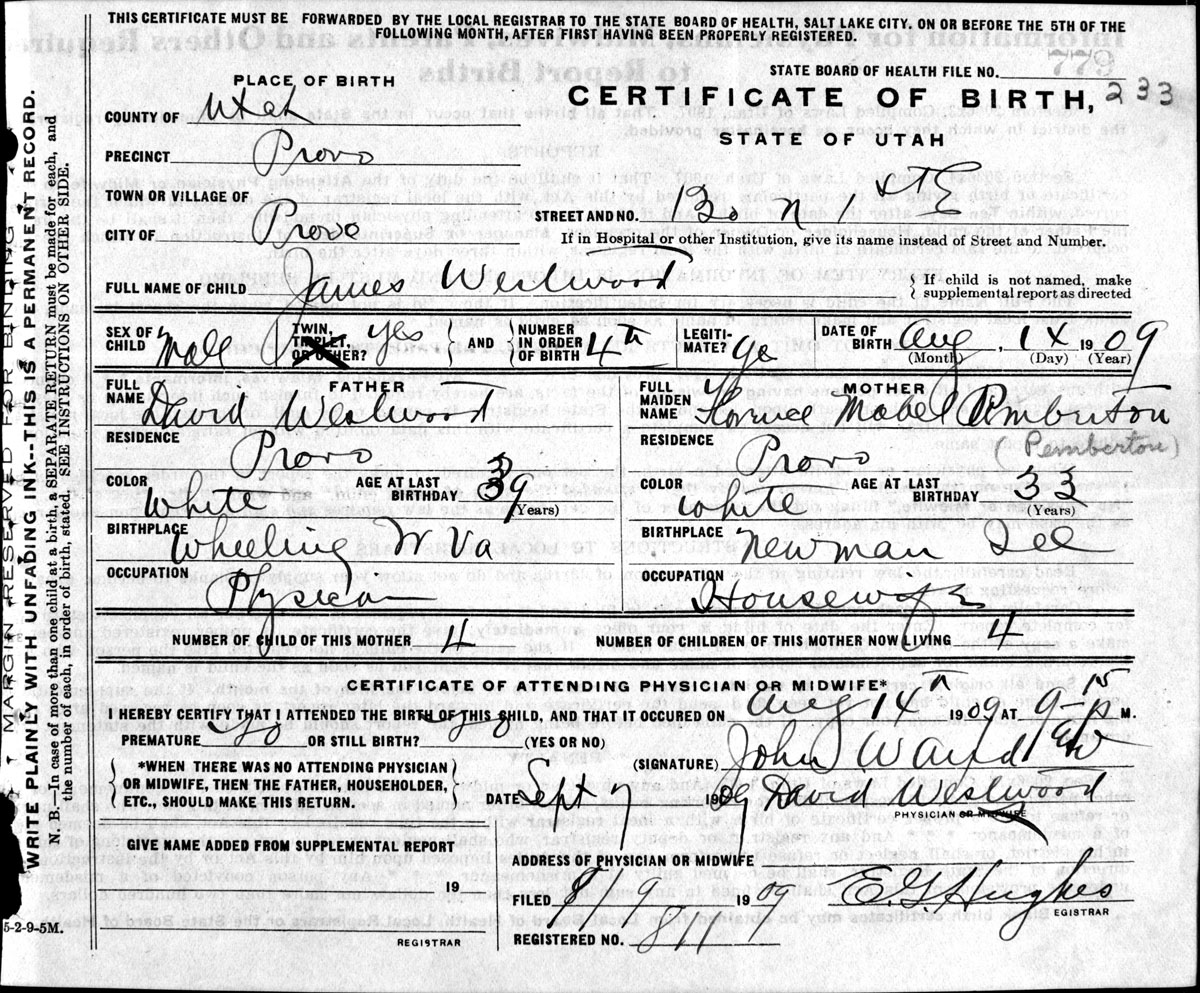 THIS CERTIFICATE MUST BE FORWARDED BY THE LOCAL REGISTRAR TO THE STATE BOARD OF HEALTH, SALT LAKE CITY, ON OR BEFORE THE 5TH OF THE
FOLLOWING MONTH, AFTER FIRST HAVING BEEN PROPERLY REGISTERED.
MARGIN RESERVED FOR BINDING
WRITE PLAINLY WITH UNFADING INK--THIS IS A PERMANENT RECORD.
N. B.—In case of more than one child at a birth, a SEPARATE RETURN must be made for each, and
the number of each, in order of birth, stated. SEE INSTRUCTIONS ON OTHER SIDE.
PLACE OF BIRTH
STATE BOARD OF HEALTH FILE NO.
CERTIFICATE OF BIRTH, 233
COUNTY OF Utah
STATE OF UTAH
PRECINCT Provo
TOWN OR VILLAGE OF
STREET AND NO. N E
CITY OF Provo
If in Hospital or other Institution, give its name instead of Street and Number.
FULL NAME OF CHILD James Westwood
If child is not named, make
supplemental report as directed
SEX OF CHILD Male
TWIN, TRIPLET, OR OTHER? yes AND
NUMBER IN ORDER OF BIRTH 4th
LEGITIMATE? Yes
DATE OF BIRTH Aug, 14 1909
(Month) (Day) (Year)
FATHER
FULL NAME David Westwood
RESIDENCE Provo
COLOR White
AGE AT LAST BIRTHDAY 39
(Years)
BIRTHPLACE Wheeling W Va
OCCUPATION Physician
MOTHER
FULL MAIDEN NAME Mabel Pemberton
RESIDENCE Provo (Pemberton)
COLOR White
AGE AT LAST BIRTHDAY 33
(Years)
BIRTHPLACE Newman Ill
OCCUPATION Housewife
NUMBER OF CHILD OF THIS MOTHER 4
NUMBER OF CHILDREN OF THIS MOTHER NOW LIVING 4
CERTIFICATE OF ATTENDING PHYSICIAN OR MIDWIFE*
I HEREBY CERTIFY THAT I ATTENDED THE BIRTH OF THIS CHILD, AND THAT IT OCCURED ON Aug 14th 1909 AT 9-15 M.
PREMATURE OR STILL BIRTH? (YES OR NO)
*WHEN THERE WAS NO ATTENDING PHYSICIAN
OR MIDWIFE, THEN THE FATHER, HOUSEHOLDER,
ETC., SHOULD MAKE THIS RETURN.
(SIGNATURE) John
DATE Sept 7 1909 David Westwood
PHYSICIAN OR MIDWIFE
GIVE NAME ADDED FROM SUPPLEMENTAL REPORT
19
REGISTRAR
ADDRESS OF PHYSICIAN OR MIDWIFE
FILED 9 1909 E. G. Hughes
EGISTRAR
REGISTERED NO.
5-2-9-5M.